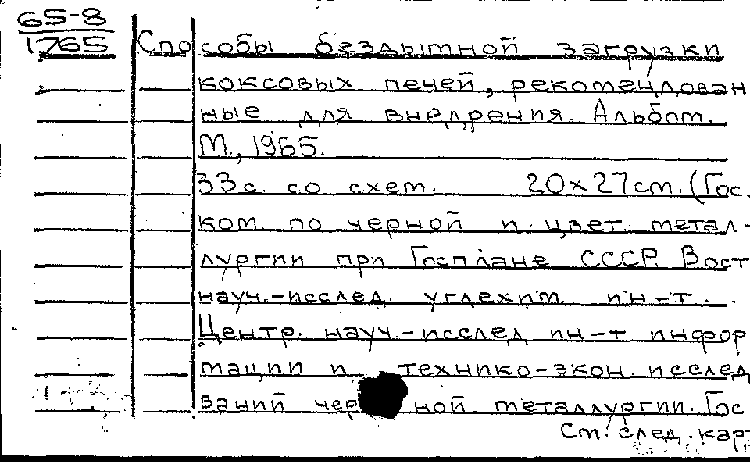 65-8
1765 Способы бездымной загрузки
коксовых печей, рекомендован
ные для внедрения. Альбом.
М., 1965.
33с. со схем. 20х27см. (Гос.
ком. по черной и цвет. метал-
лургии при Госплане СССР. Вост
науч.-исслед. углехим. ин-т.
Центр. науч.-исслед ин-т инфор
мации и технико-экон. исслед
ваний чер ной металлургии. Гос
См. след. карт